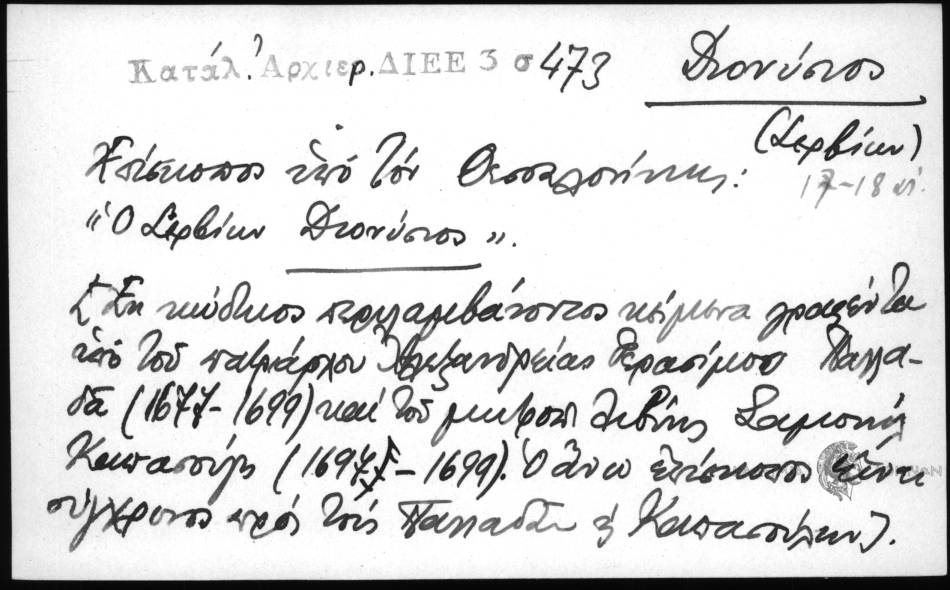 Κατάλ. Ἀρχιερ. ΔΙΕΕ 3 σ 473 Διονύσιος
(Σερβίων)
Ἐπίσκοπος ὑπό τόν Θεσσαλονίκης: 17-18 αἰ.
"Ὁ Σερβίων Διονύσιος".
[Ἐκ κώδικος περιλαμβάνοντος κείμενα γραφέντα
ὑπό τοῦ πατριάρχου Ἀλεξανδρείας Γερασίμου Παλλα-
δᾶ (1677-1699) καί τοῦ μητροπ Λιβύης Σαμουήλ
Καπασούλη (1697-1699). Ὁ ἄνω ἐπίσκοπος εἶναι
σύγχρονος πρός τούς Παλλαδᾶν ἤ Καπασούλην].